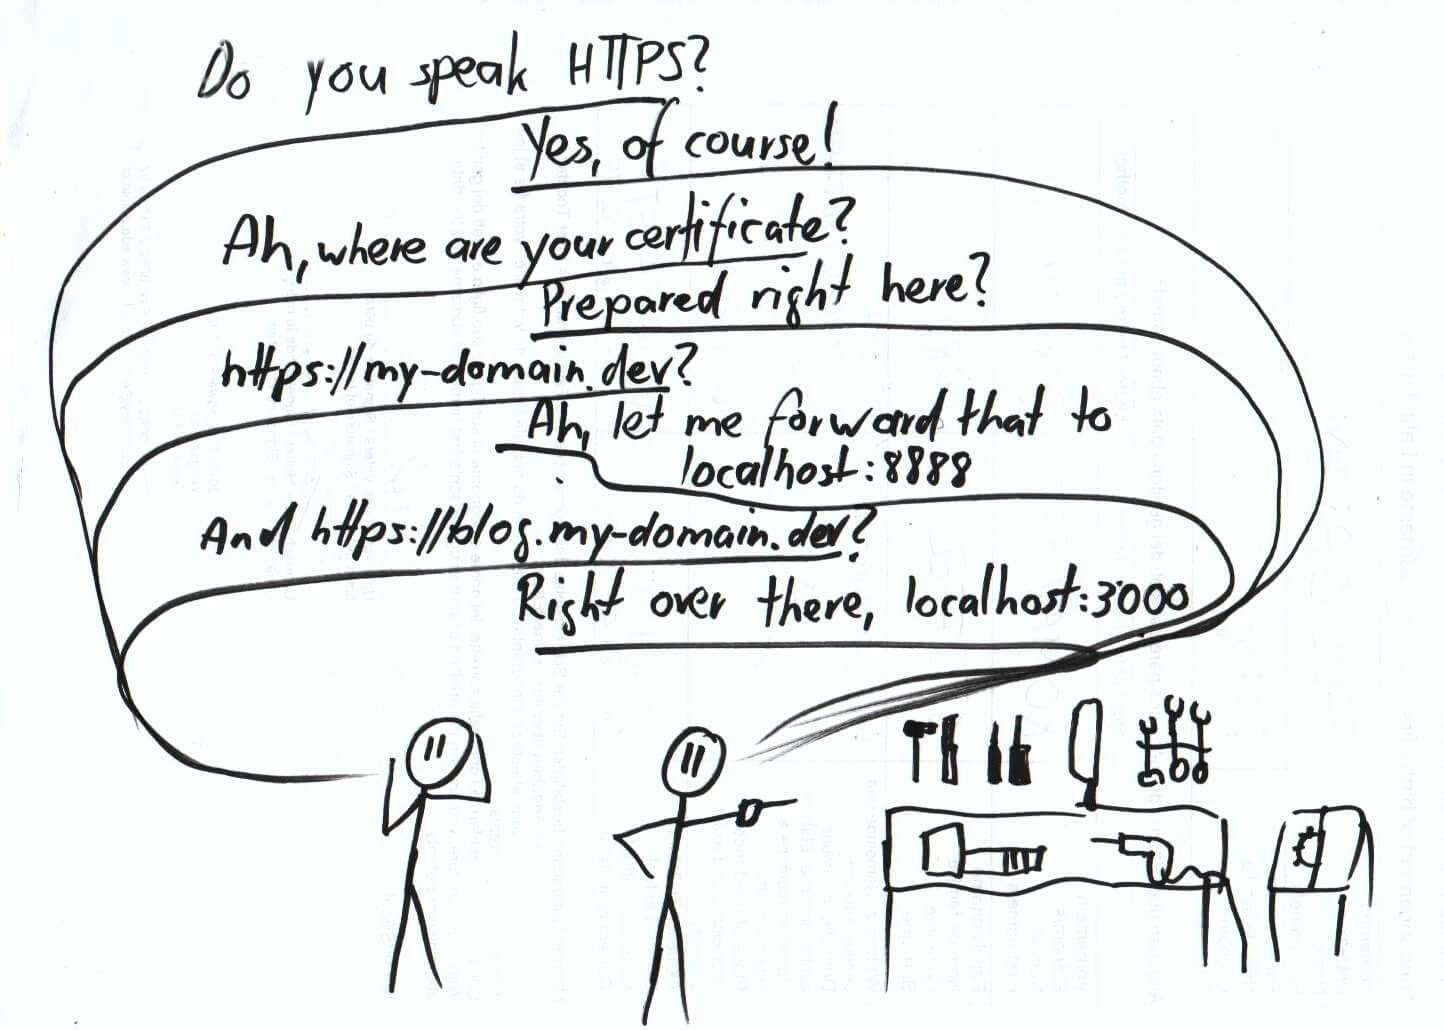 Do you speak HTTPS?
Yes, of course!
Ah, where are your certificate?
Prepared right here?
https://my-domain.dev?
Ah, let me forward that to
localhost:8888
And https://blog.my-domain.dev?
Right over there, localhost:3000